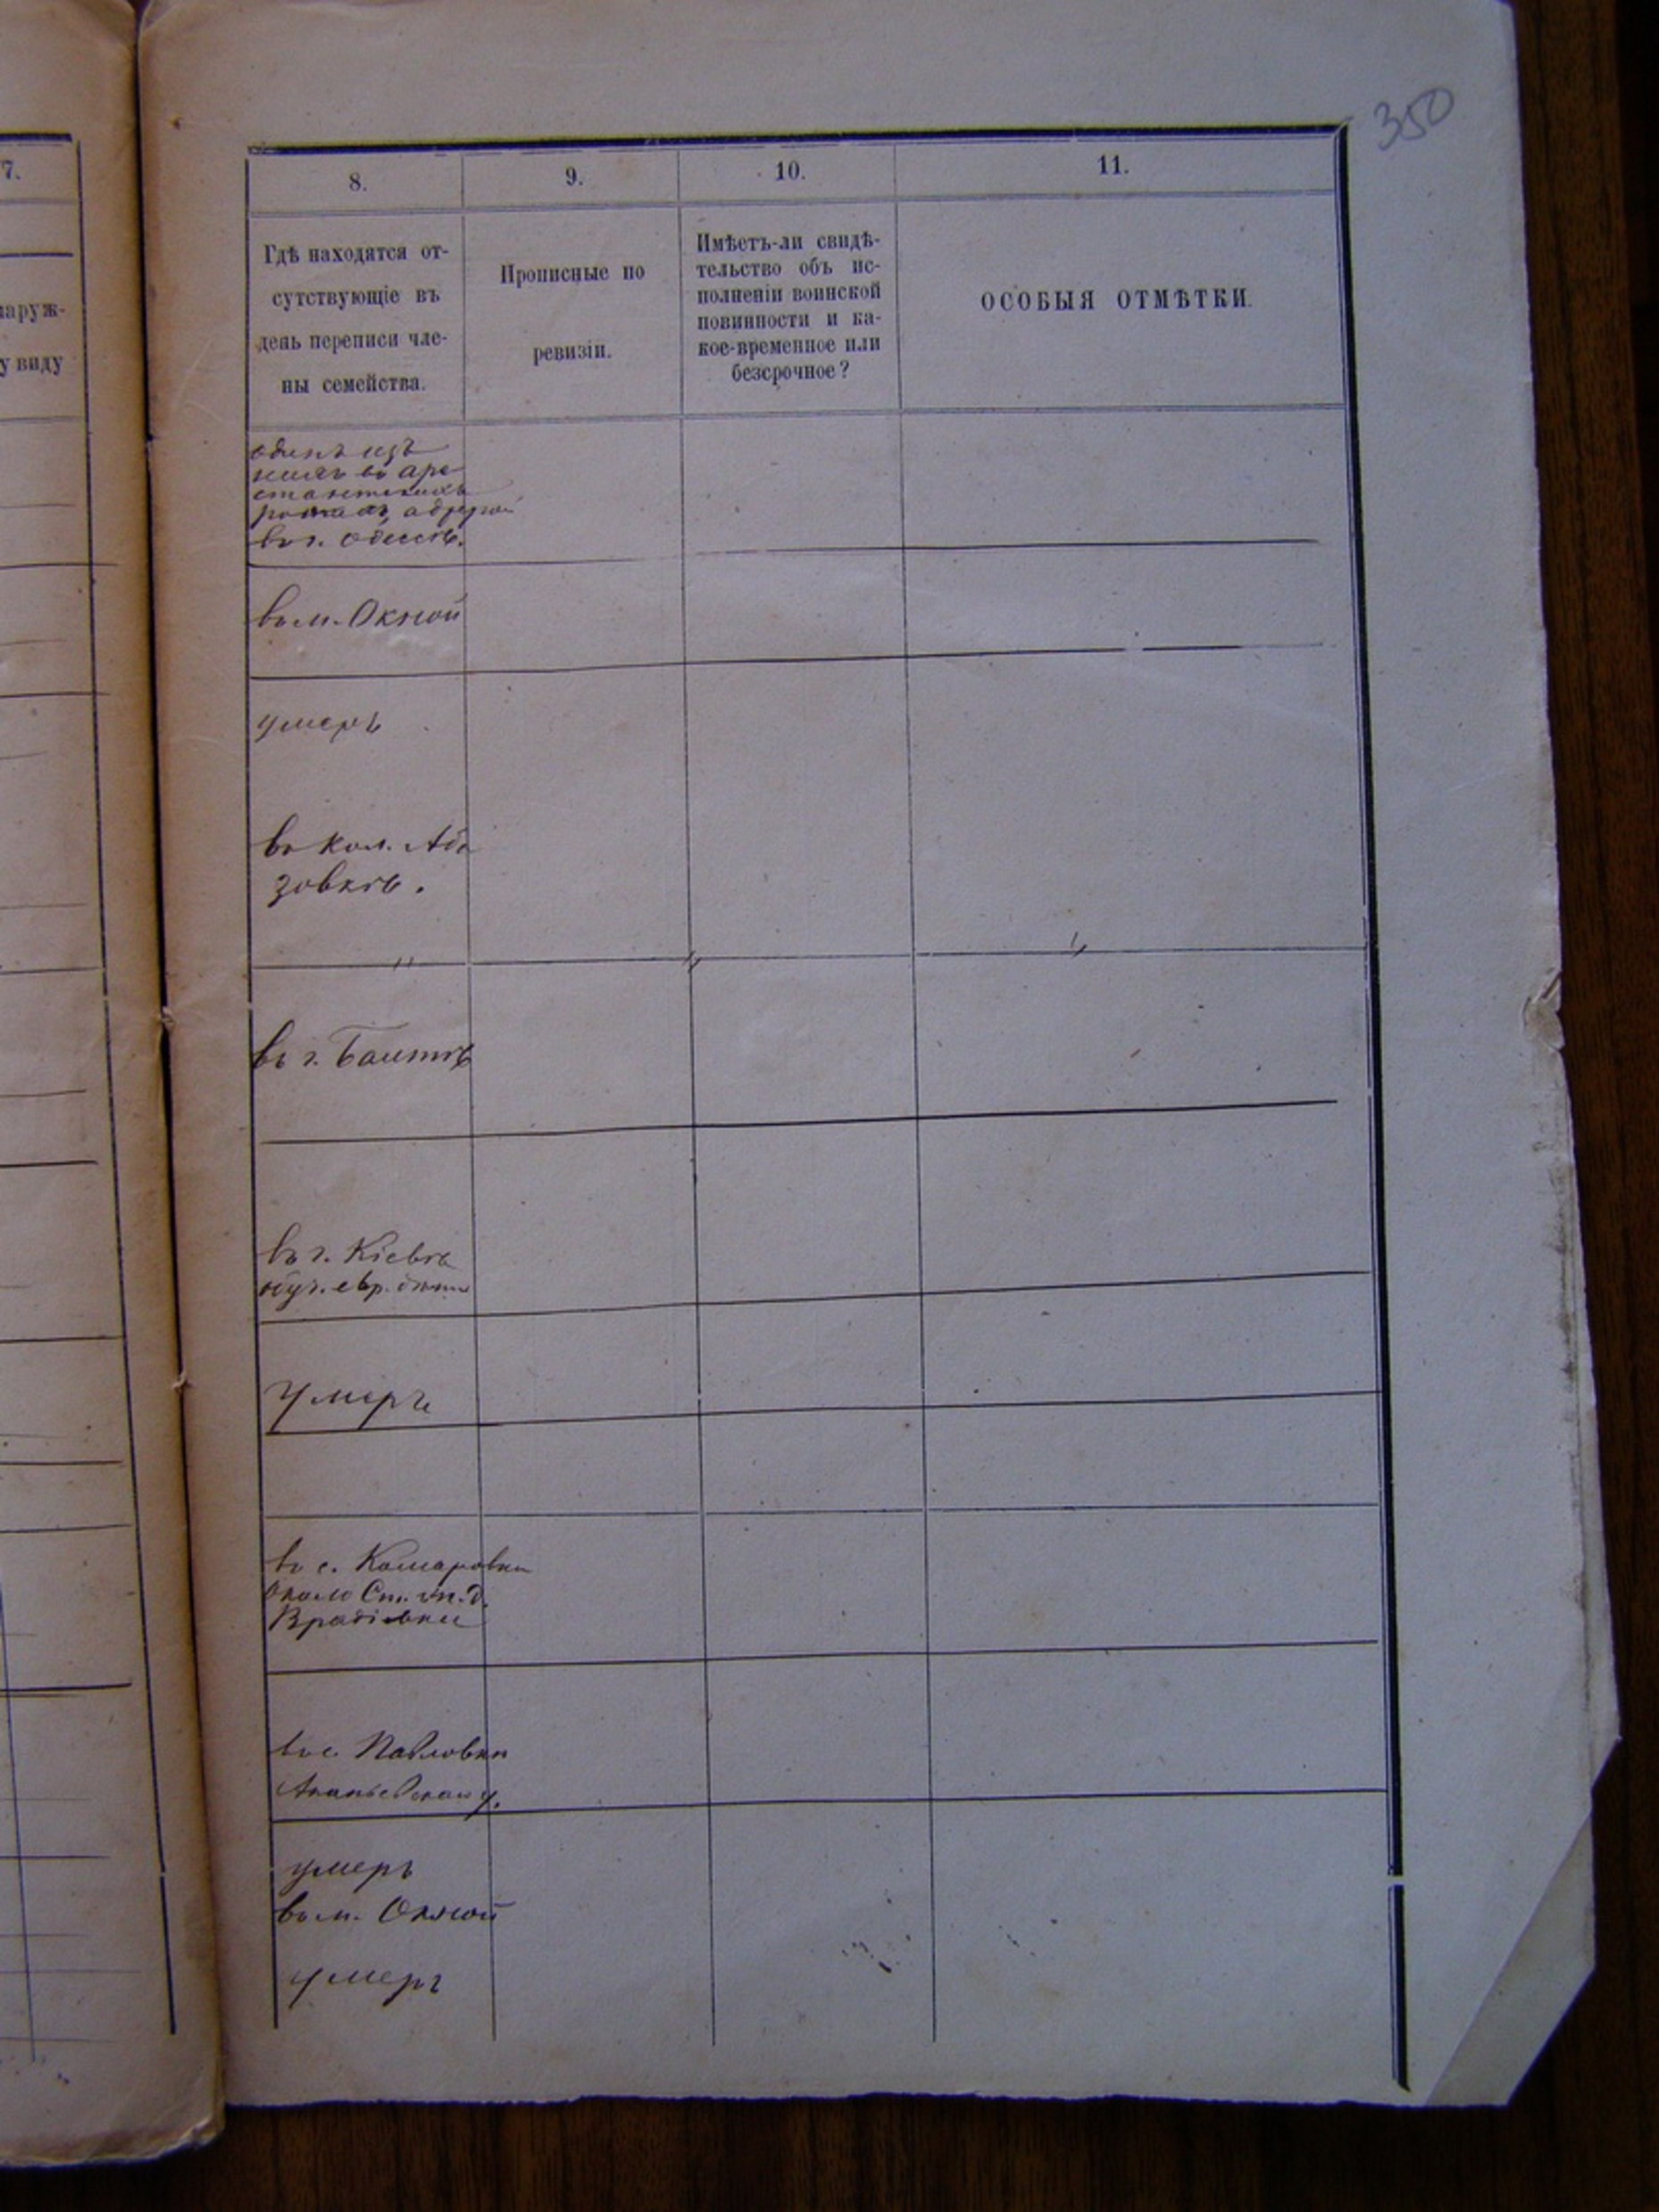 350
7.
8.
9.
10.
11.
наруж-
у виду
Гдѣ находятся от-
сутствующіе въ
день переписи чле-
ны семейства.
Прописные по
ревизіи.
Имѣетъ-ли свидѣ-
тельство объ ис-
полненіи воинской
повинности и ка-
кое-временное или
безсрочное?
ОСОБЫЯ ОТМѢТКИ.
одинъ изъ
нихъ въ аре-
стантскихъ
ротахъ, а другой
въ г. Одессѣ.
въ м. Окной
умеръ
въ кол. Аба
зовкѣ.
в г. Балтѣ
въ г. Кіевѣ
евр.
Умеръ
в с. Комаровки
около Ст. ж. д.
Врадіевки
въ с. Павловки
Ананьевскаго у.
умеръ
въ м. Окной
умеръ